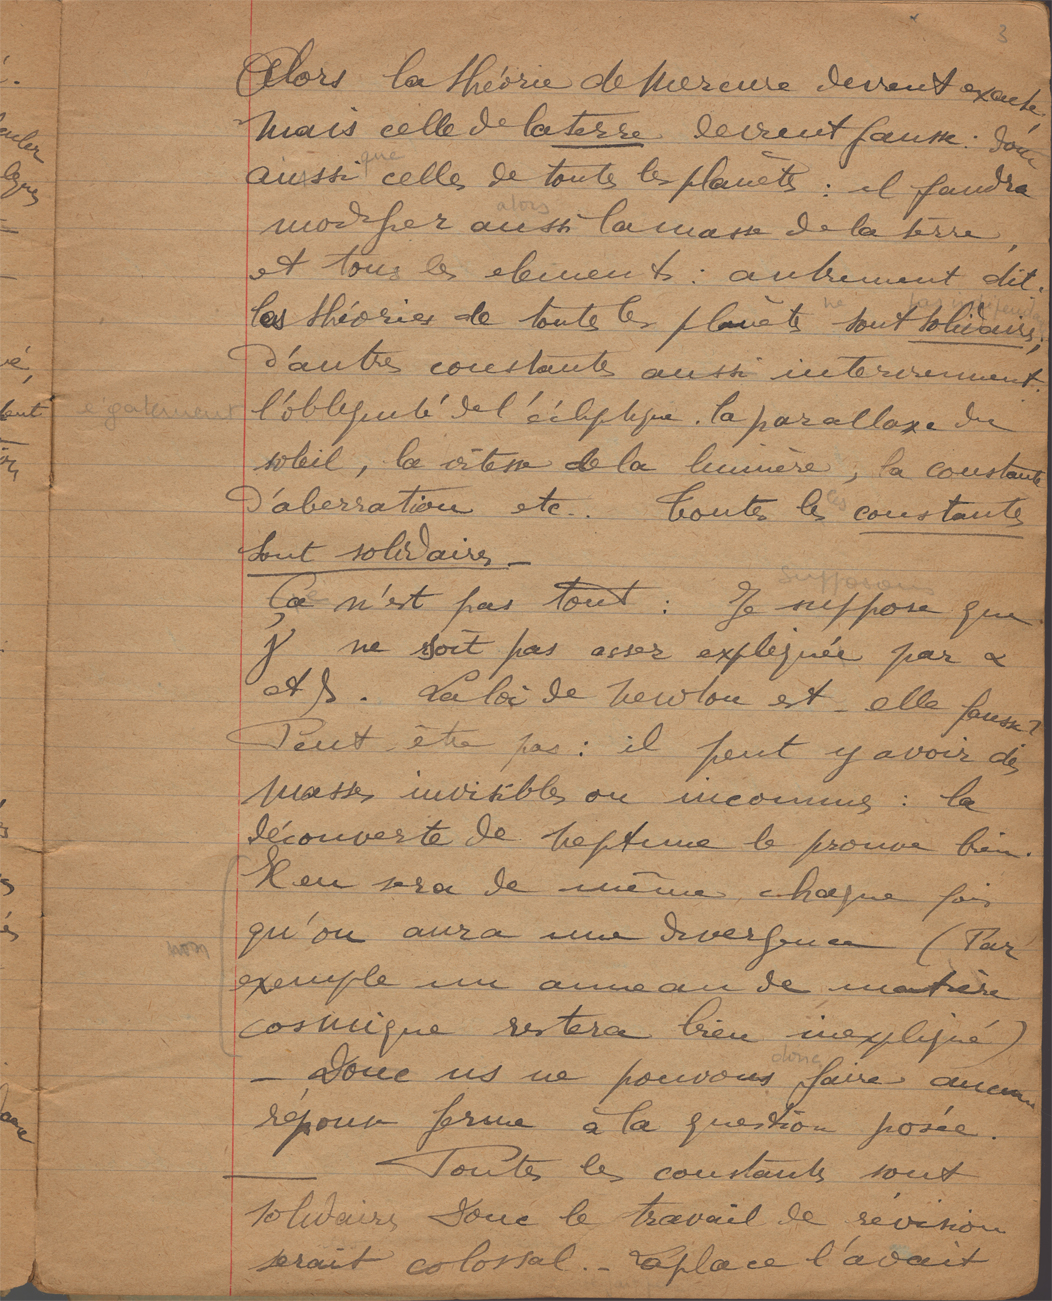 3
Alors la théorie de Mercure devient exacte
Mais celle de la terre devient fausse : donc
aussi que celles de toutes les planètes : il faudra
alors
modifier aussi la masse de la terre,
et tous les elements : autrement dit.
ne
les théories de toutes les planètes sont solidaires,
D'autres constantes aussi interviennent.
également l'obliquité de l'écliptique. la parallaxe du
soleil, la vitesse de la lumière, la constante
D'aberration etc.. Toutes les constantes
les
sont solidaires –
supposons
Ça n'est pas tout : Je suppose que
γ ne soit pas assez expliquée par α
et β. La loi de Newton est-elle fausse ?
Peut être pas : il peut y avoir des
masses invisibles ou inconnues : la
découverte de Neptune le prouve bien.
Il en sera de même, chaque fois
non qu'on aura une divergence (Par
exemple un anneau de matière
cosmique restera bien inexpliqué)
donc
– Donc ns ne pouvons faire aucune
réponse ferme à la question posée.
— Toutes les constantes sont
solidaires Donc le travail de révision
serait colossal. – Laplace l'avait